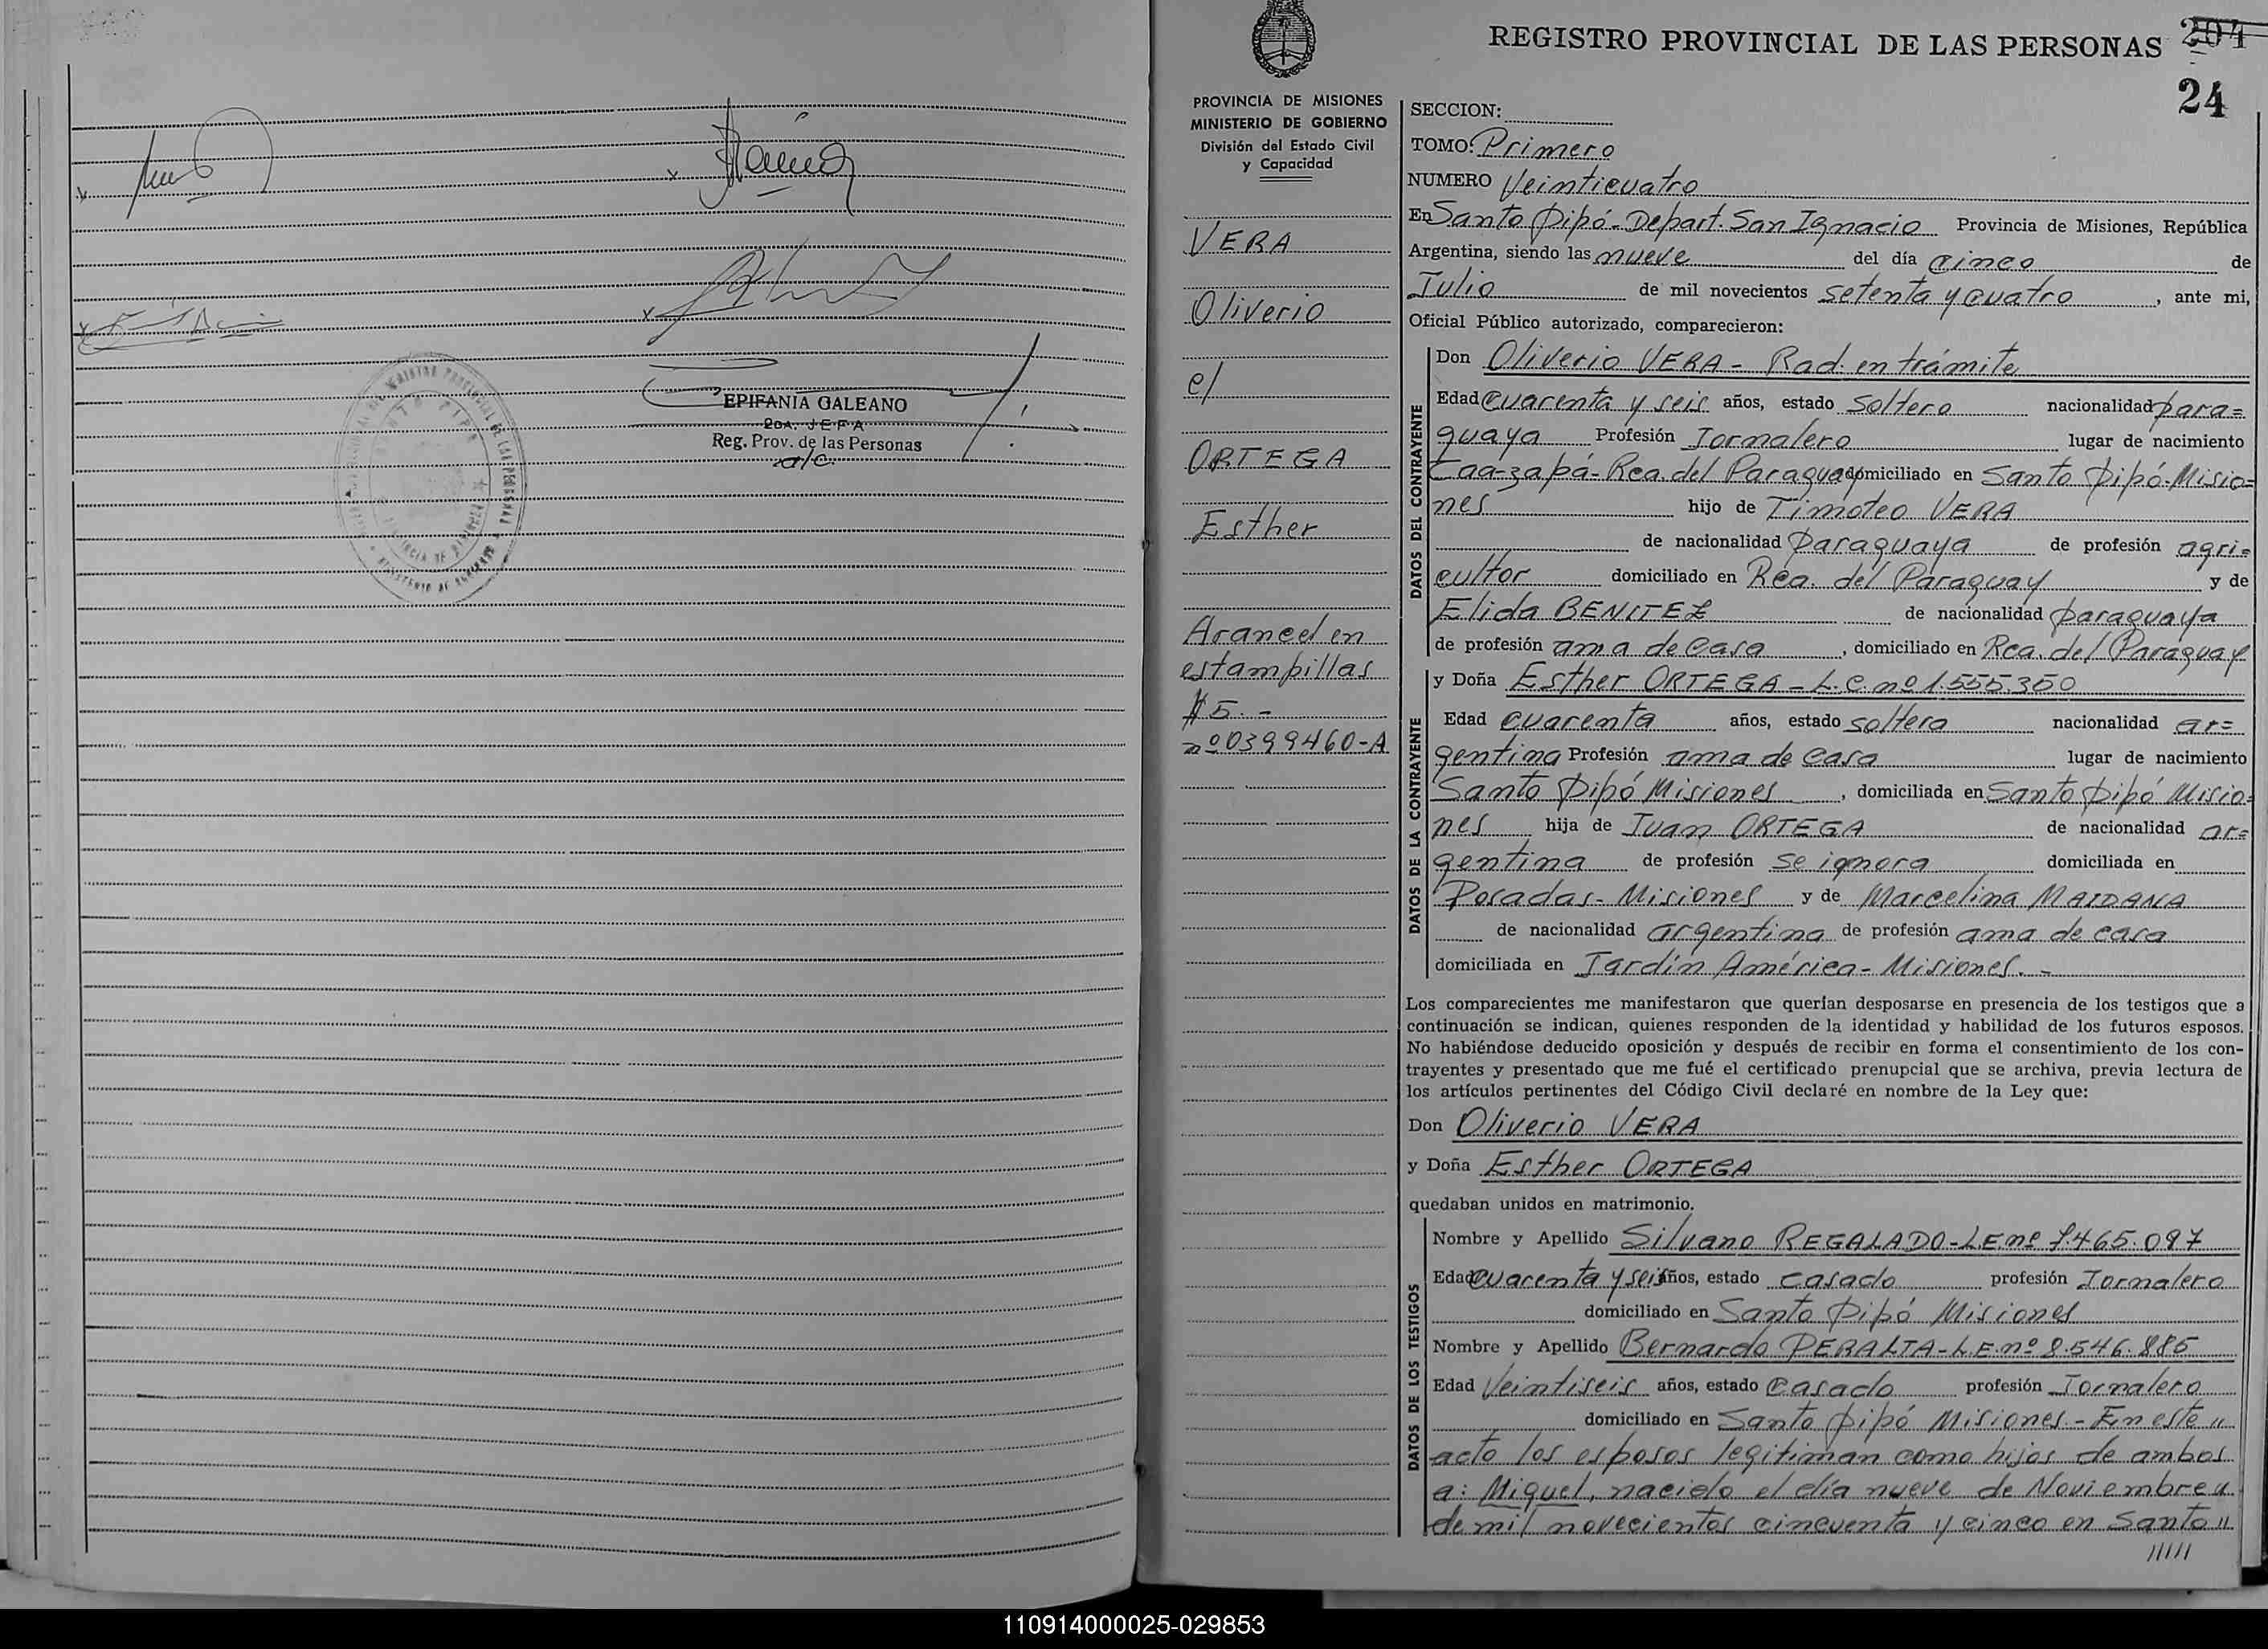 EPIFANIA GALEANO
2DA. JEFA
Reg. Prov. de las Personas
a/c.
REGISTRO PROVINCIAL DE LAS PERSONAS
204
24
PROVINCIA DE MISIONES
MINISTERIO DE GOBIERNO
División del Estado Civil
y Capacidad
VERA
Oliverio
c/
ORTEGA
Esther
Arancel en
estampillas
$5.-
nº0399460-A
SECCION:
TOMO: Primero
NUMERO Veinticuatro
En Santo Pipó-Depart. San Ignacio Provincia de Misiones, República
Argentina, siendo las nueve del día cinco de
Julio de mil novecientos setenta y cuatro, ante mi,
Oficial Público autorizado, comparecieron:
DATOS DEL CONTRAYENTE
Don Oliverio VERA - Rad. en trámite
Edad cuarenta y seis años, estado soltero nacionalidad para=
guaya Profesión Jornalero lugar de nacimiento
Caa-zapá-Rca. del Paraguay domiciliado en Santo Pipó-Misio=
nes hijo de Timoteo VERA
de nacionalidad Paraguaya de profesión agri=
cultor domiciliado en Rca. del Paraguay y de
Elida BENITEZ de nacionalidad paraguaya
de profesión ama de casa, domiciliado en Rca. del Paraguay
DATOS DE LA CONTRAYENTE
y Doña Esther ORTEGA - L.C. nº 1.555.350
Edad cuarenta años, estado soltera nacionalidad ar=
gentina Profesión ama de casa lugar de nacimiento
Santo Pipó Misiones, domiciliada en Santo Pipó Misio=
nes hija de Juan ORTEGA de nacionalidad ar=
gentina de profesión se ignora domiciliada en
Posadas- Misiones y de Marcelina MAIDANA
de nacionalidad argentina de profesión ama de casa
domiciliada en Jardín América- Misiones. -
Los comparecientes me manifestaron que querían desposarse en presencia de los testigos que a
continuación se indican, quienes responden de la identidad y habilidad de los futuros esposos.
No habiéndose deducido oposición y después de recibir en forma el consentimiento de los con-
trayentes y presentado que me fué el certificado prenupcial que se archiva, previa lectura de
los artículos pertinentes del Código Civil declaré en nombre de la Ley que:
Don Oliverio VERA
y Doña Esther ORTEGA
quedaban unidos en matrimonio.
DATOS DE LOS TESTIGOS
Nombre y Apellido Silvano REGALADO-L.E. nº 7.465.097
Edad cuarenta y seis años, estado casado profesión Jornalero
domiciliado en Santo Pipó Misiones
Nombre y Apellido Bernardo PERALTA-L.E. nº 8.546.885
Edad Veintiseis años, estado casado profesión Jornalero
domiciliado en Santo Pipó Misiones.- En este "
acto los esposos legitiman como hijos de ambos
a: Miguel, nacido el día nueve de Noviembre "
de mil novecientos cincuenta y cinco en Santo "
/////
110914000025-029853